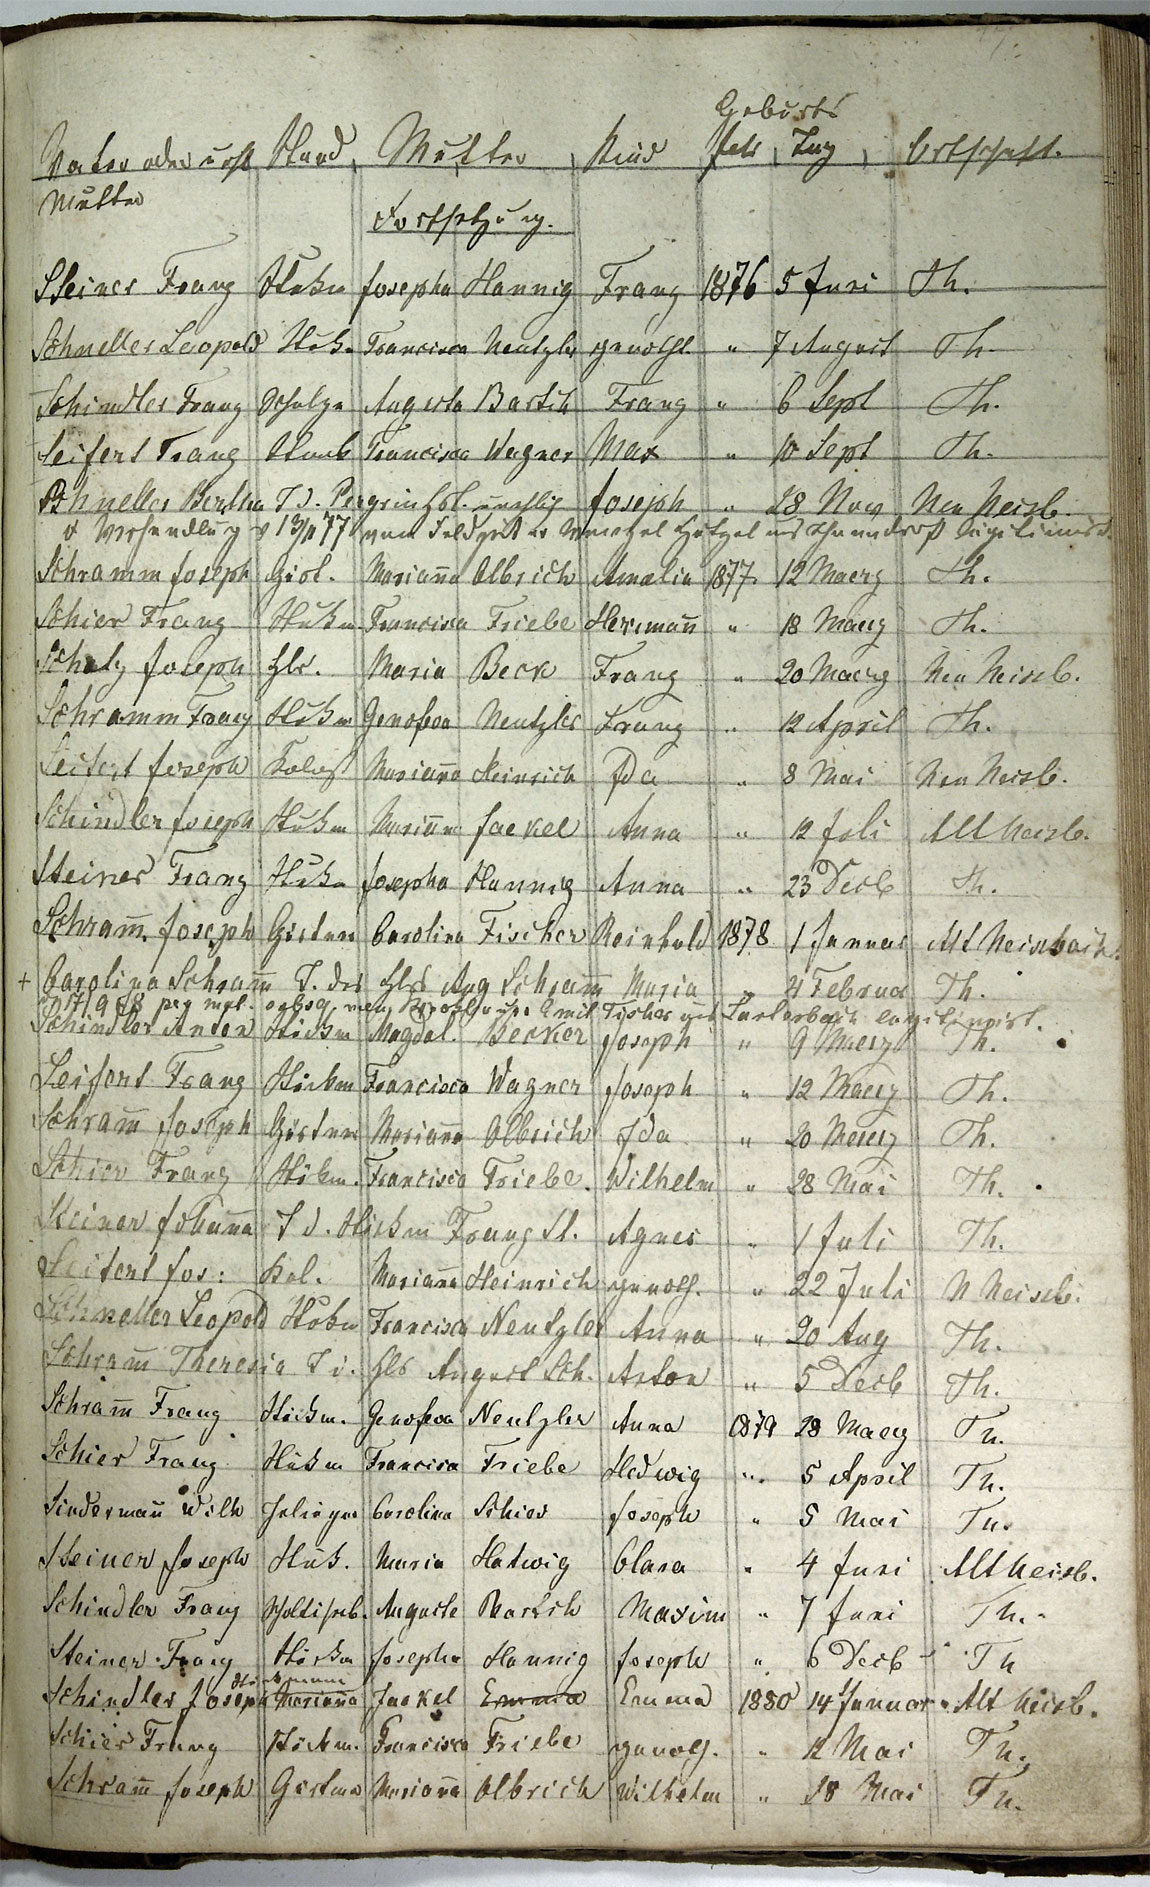 Geburts
Vater oder unehl Stand Mutter Kind Jahr Tag Ortschaft.
Mutter
Fortsetzung.
Steiner Franz Stückm Josepha Hannig Franz 1876 5 Juni Th.
Schneller Leopold Stückm Francisca Neutzler " 7 August Th.
Schindler Franz Scholze Augusta Bartsch Franz " 6 Sept Th.
Seifert Franz Francisca Wagner Max " 10 Sept Th.
Schneller Bertha T. d. unehlich Joseph " 28 Nov Neu Neisb.
Verhandlung v 13/11 77 legitimirt.
Schramm Joseph Marianna Olbrich Amalia 1877 12 Maerz Th.
Schier Franz Stückm Francisca Friebe Hermann " 18 Maerz Th.
Scholz Joseph Hlr. Maria Beck Franz " 20 Maerz Neu Neisb.
Schramm Franz Stückm Genofeva Neutzler Franz " 12 April Th.
Seifert Joseph Marianna Heinrich Ida " 8 Mai Neu Neisb.
Schindler Joseph Stückm Mariann Jaekel Anna " 12 Juli Alt Neisb.
Steiner Franz Stückm Josepha Hannig Anna " 23 Decb Th.
Schram̄ Joseph Gärtner Carolina Fischer Reinhold 1878 1 Januar Alt Neisbach.
+ Carolina Schram̄ T. des Hlrs Aug Schram̄ Maria " 4 Februar Th.
Emil Fischer aus legitimirt.
Schindler Anton Stückm Magdal. Becker Joseph " 9 Maerz Th.
Seifert Franz Stückm Francisca Wagner Joseph " 12 Maerz Th.
Schram̄ Joseph Gärtner Marianna Olbrich Ida " 20 Maerz Th.
Schier Franz Stückm. Francisca Friebe. Wilhelm " 28 Mai Th.
Steiner Johanna T d. Stückm Franz St. Agnes " 1 Juli Th.
Seifert Jos: Kol. Marianna Heinrich " 22 Juli N Neisb.
Schneller Leopold Stückm Francisca Neutzler Anna " 20 Aug Th.
Schram̄ Theresia T d. Hlrs August Sch. Anton " 5 Decb Th.
Schram̄ Franz Stückm. Genofeva Neutzler Anna 1879 28 Maerz Th.
Schier Franz Stückm Francisca Friebe Hedwig " 5 April Th.
Sindermañ Wilh Carolina Schier Joseph " 5 Mai Th.
Steiner Joseph Stück. Maria Hatwig Clara " 4 Juni Alt Neisb.
Schindler Franz Auguste Bartsch Maxim " 7 Juni Th.
Steiner Franz Stückm Josepha Hannig Joseph " 6 Decb Th
Stückmann
Schindler Joseph Marianna Jaekel Emma Emma 1880 14 Januar Alt Neisb.
Schier Franz Stückm. Francisca Friebe " 12 Mai Th.
Schram̄ Joseph Gärtner Marianna Olbrich Wilhelm " 18 Mai Th.